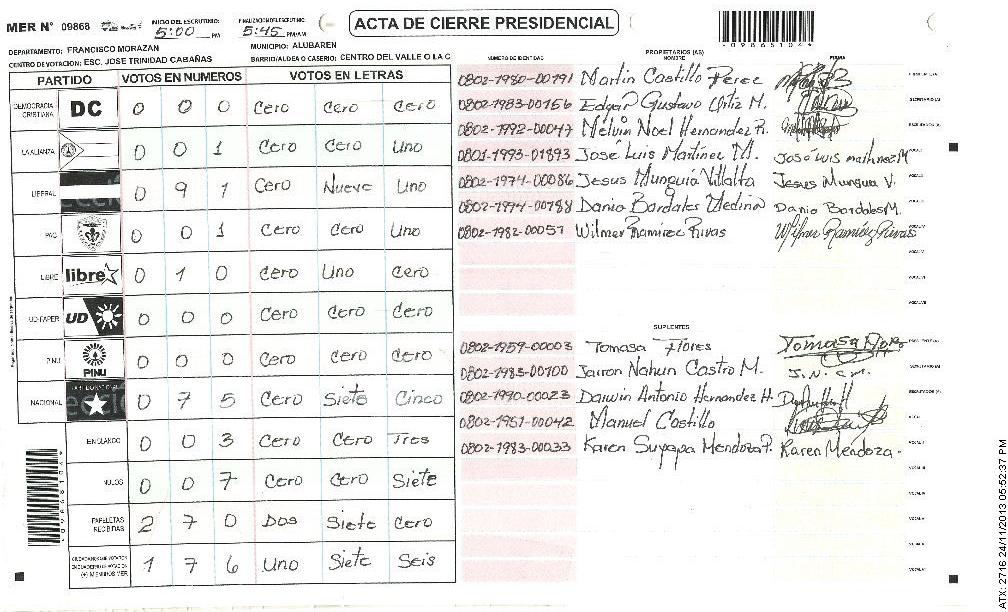 MER N° 09868
INICIO DEL ESCRUTINIO: 5:00 PM
FINALIZACION ESCRUTINIO: 5:45 PM/AM
ACTA DE CIERRE PRESIDENCIAL
09868104
DEPARTAMENTO: FRANCISCO MORAZAN
MUNICIPIO: ALUBAREN
CENTRO DE VOTACION: ESC. JOSE TRINIDAD CABAÑAS
BARRIO/ALDEA O CASERIO: CENTRO DEL VALLE O LA C
PARTIDO VOTOS EN NUMEROS VOTOS EN LETRAS
DEMOCRACIA CRISTIANA DC 0 0 0 Cero Cero Cero
LA ALIANZA 0 0 1 Cero Cero Uno
LIBERAL 0 9 1 Cero Nueve Uno
PAC 0 0 1 Cero Cero Uno
LIBRE libre 0 1 0 Cero Uno Cero
UD-FAPER UD 0 0 0 Cero Cero Cero
PINU PINU 0 0 0 Cero Cero Cero
NACIONAL 0 7 5 Cero Siete Cinco
EN BLANCO 0 0 3 Cero Cero Tres
NULOS 0 0 7 Cero Cero Siete
PAPELETAS RECIBIDAS 2 7 0 Dos Siete Cero
CIUDADANOS QUE VOTARON EN CUADERNO DE VOTACION (+) MIEMBROS MER 1 7 6 Uno Siete Seis
PROPIETARIOS (AS)
NUMERO DE IDENTIDAD NOMBRE FIRMA
0802-1980-00191 Martin Castillo Perez
0802-1983-00156 Edgar Gustavo Ortiz M. SECRETARIO (A)
0802-1992-00047 Melvin Noel Hernandez R. ESCRUTADOR (A)
0801-1995-01893 José Luis Martinez M. José Luis martinez M
0802-1974-00086 Jesus Munguia Villalta Jesus Mungua V.
0802-1994-00188 Danio Bordales Medina Danio Bordales M.
0802-1982-00057 Wilmer Ramirez Rivas Wilmer Ramirez Rivas
SUPLENTES
0802-1959-00003 Tomasa Flores Tomasa
0802-1985-00100 Jairon Nahun Castro M. J.N.C.M. SECRETARIO (A)
0802-1990-00023 Darwin Antonio Hernandez H. ESCRUTADOR (A)
0802-1957-00042 Manuel Castillo
0802-1983-00033 Karen Suyapa Mendoza P. Karen Mendoza
09868104
ATX: 2716 24/11/2013 05:52:37 PM